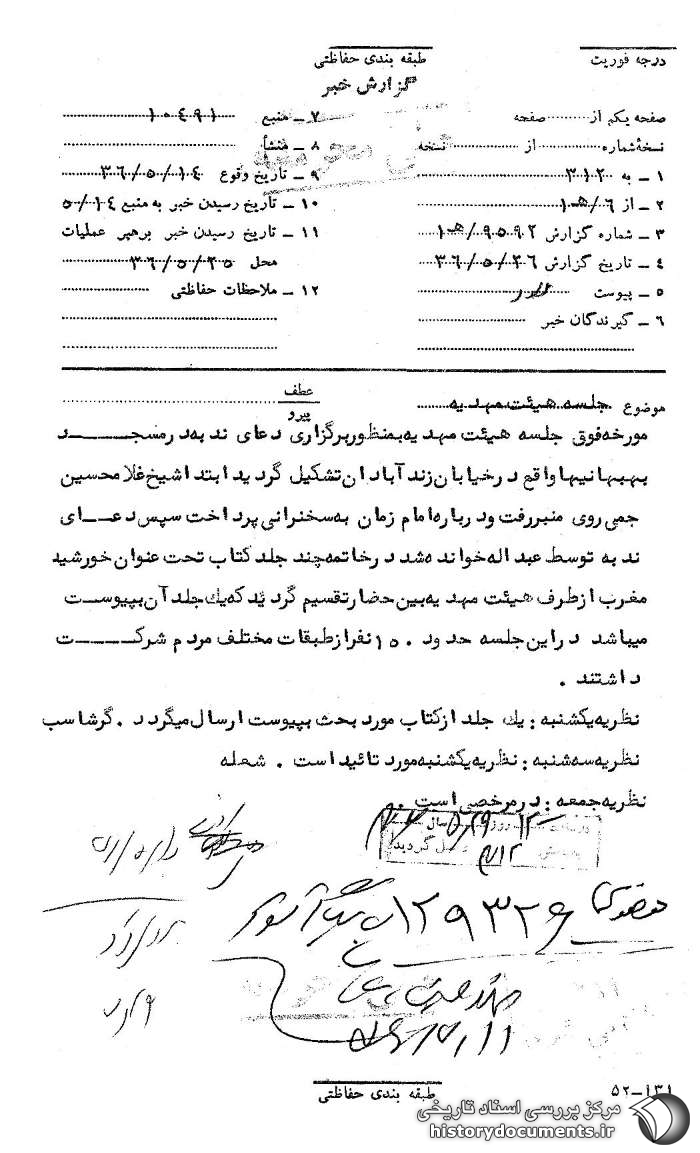 درجه فوریت
طبقه بندی حفاظتی
گزارش خبر
صفحه یکم از صفحه
نسخهٔ شماره از نسخه
۱ ـ به ۳۱۲
۲ ـ از ۶/هـ۱
۳ ـ شماره گزارش ۹۵۹۲/هـ۱
۴ ـ تاریخ گزارش ۳۶/۵/۲۶
۵ ـ پیوست دارد
۶ ـ گیرندگان خبر
۷ ـ منبع ۱۰۴۹۱
۸ ـ منشأ
۹ ـ تاریخ وقوع ۳۶/۵/۱۴
۱۰ ـ تاریخ رسیدن خبر به منبع ۵/۱۴
۱۱ ـ تاریخ رسیدن خبر برهبر عملیات
محل ۳۶/۵/۲۵
۱۲ ـ ملاحظات حفاظتی
موضوع جلسه هیئت مهدیه
عطف
پیرو
مورخه فوق جلسه هیئت مهدیه بمنظور برگزاری دعای ندبه در مسجد
بهبهانیها واقع در خیابان زند آبادان تشکیل گردید ابتدا شیخ غلامحسین
جمی روی منبر رفت و درباره امام زمان به سخنرانی پرداخت سپس دعای
ندبه توسط عبداله خوانده شد در خاتمه چند جلد کتاب تحت عنوان خورشید
مغرب از طرف هیئت مهدیه بین حضار تقسیم گردید که یك جلد آن بپیوست
میباشد در این جلسه حدود ۱۵۰ نفر از طبقات مختلف مردم شرکت
داشتند .
نظریه یکشنبه : یك جلد از کتاب مورد بحث بپیوست ارسال میگردد . گرشاسب
نظریه سه شنبه : نظریه یکشنبه مورد تائید است . شعله
نظریه جمعه : در مرخصی است .
۱۲۹۳۲۶
طبقه بندی حفاظتی
۵۲-۱۳۱
مرکز بررسی اسناد تاریخی
historydocuments.ir